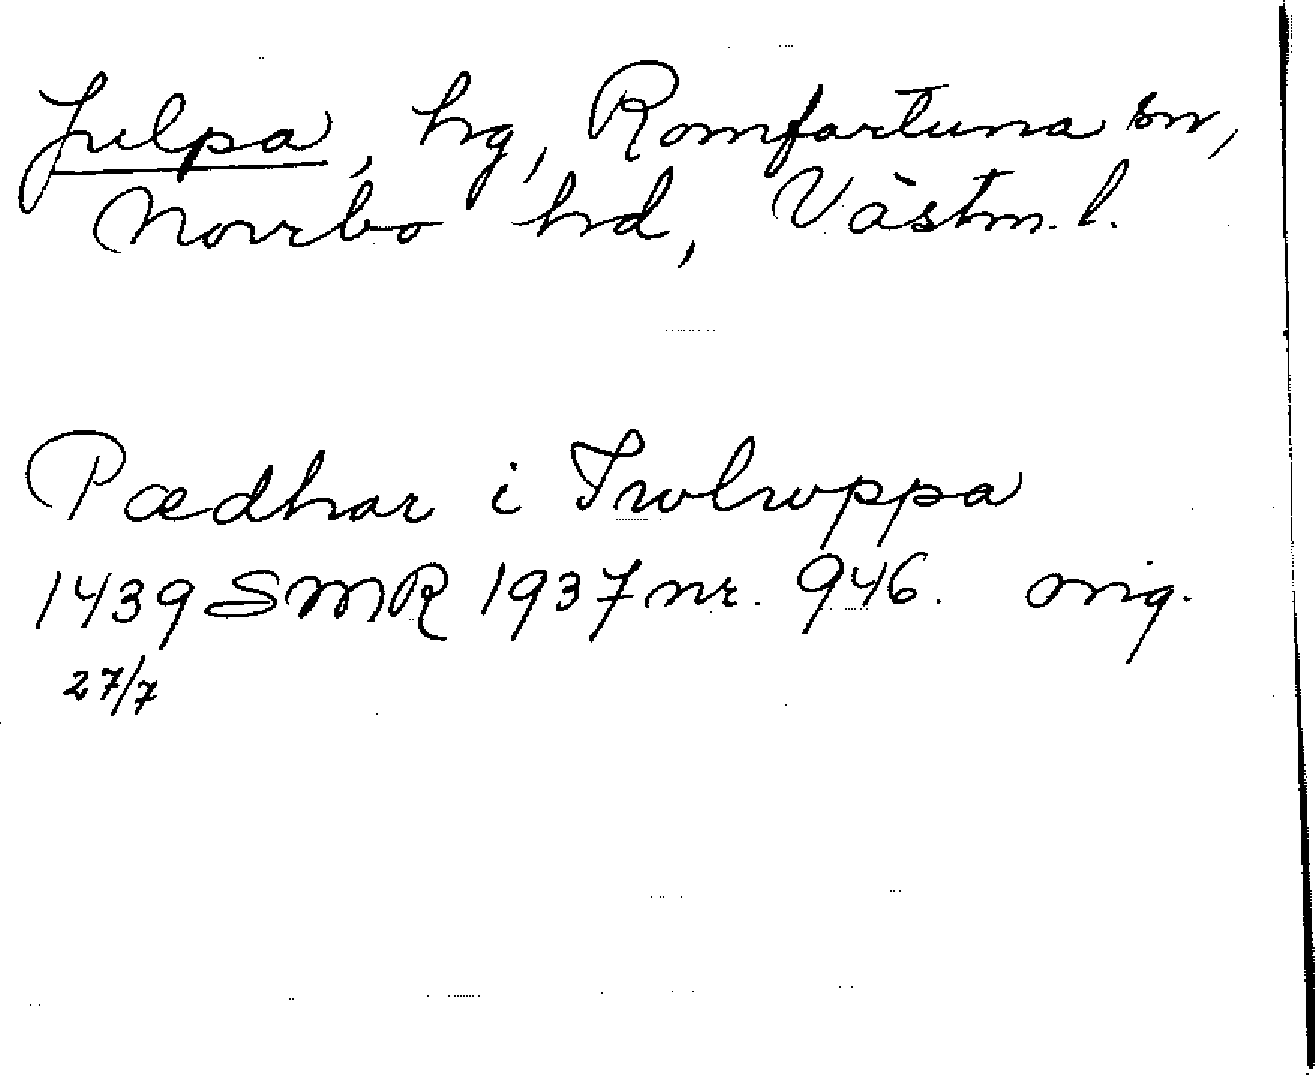 Julpa, hg, Romfartuna sn,
Norrbo hd, Västm. l.
Pædhar i Iwlwppa
1439 SMR 1937 nr. 946. orig.
27/7